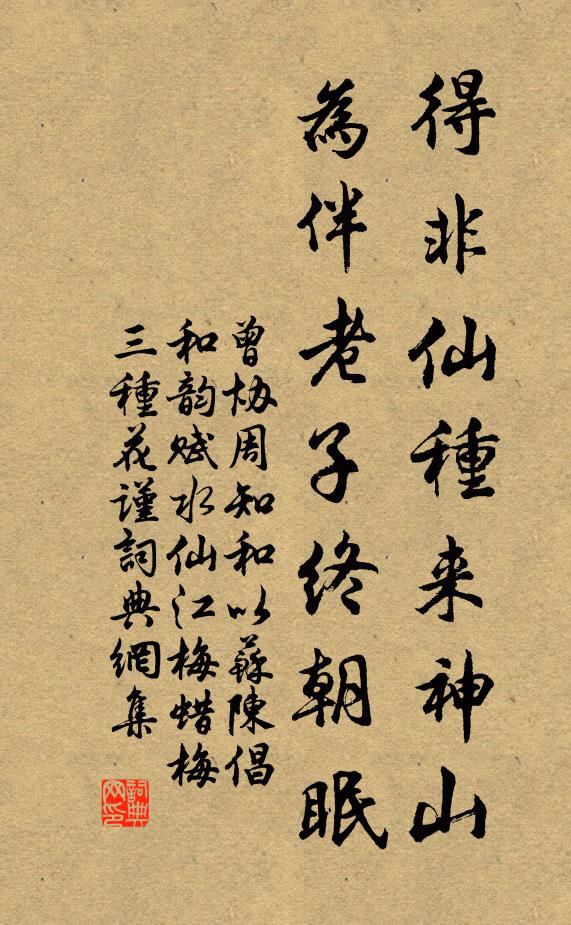 得非仙種来神山
為伴老子終朝眠
曾协周知和以蘇陳倡
和韵赋水仙江梅蜡梅
三種花谨詞典網集
詞典网印